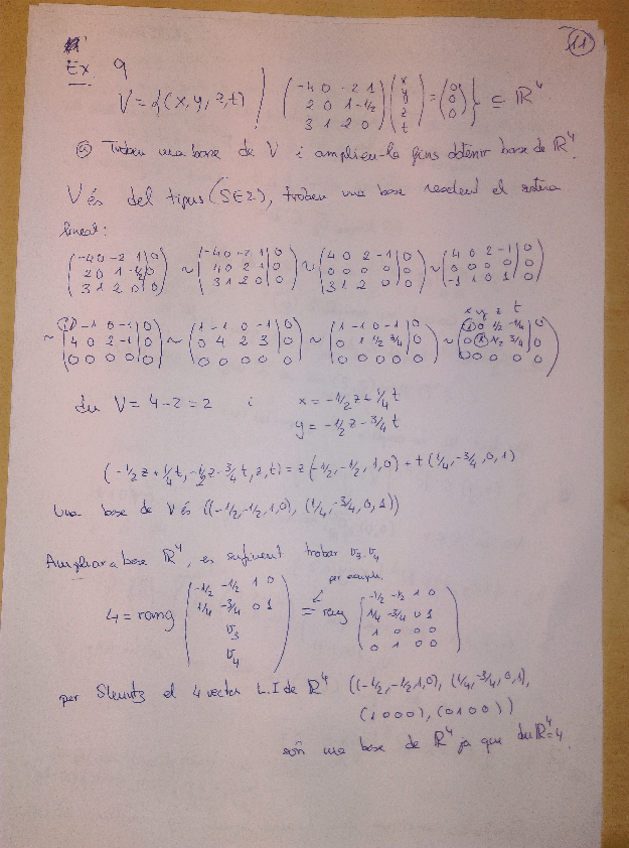 11
Ex 9
V = {(x, y, z, t) / (-4 0 -2 1; 2 0 1 -1/2; 3 1 2 0) (x; y; z; t) = (0; 0; 0)} ⊆ ℝ⁴
a) Trobeu una base de V i amplieu-la fins obtenir base de ℝ⁴.
V és del tipus (SE2), trobem una base resolent el sistema
lineal:
(-4 0 -2 1 | 0; 2 0 1 -1/2 | 0; 3 1 2 0 | 0) ~ (-4 0 -2 1 | 0; 4 0 2 -1 | 0; 3 1 2 0 | 0) ~ (4 0 2 -1 | 0; 0 0 0 0 | 0; 3 1 2 0 | 0) ~ (4 0 2 -1 | 0; 0 0 0 0 | 0; -1 1 0 1 | 0)
x y z t
~ (1 -1 0 -1 | 0; 4 0 2 -1 | 0; 0 0 0 0 | 0) ~ (1 -1 0 -1 | 0; 0 4 2 3 | 0; 0 0 0 0 | 0) ~ (1 -1 0 -1 | 0; 0 1 1/2 3/4 | 0; 0 0 0 0 | 0) ~ (1 0 1/2 -1/4 | 0; 0 1 1/2 3/4 | 0; 0 0 0 0 | 0)
dim V = 4-2 = 2 i x = -1/2z + 1/4t
y = -1/2z - 3/4t
(-1/2z + 1/4t, -1/2z - 3/4t, z, t) = z(-1/2, -1/2, 1, 0) + t(1/4, -3/4, 0, 1)
Una base de V és ((-1/2, -1/2, 1, 0), (1/4, -3/4, 0, 1))
Ampliar a base ℝ⁴, es suficient trobar v₃, v₄
per exemple
4 = rang (-1/2 -1/2 1 0; 1/4 -3/4 0 1; v₃; v₄) = rang (-1/2 -1/2 1 0; 1/4 -3/4 0 1; 1 0 0 0; 0 1 0 0)
per Steinitz el 4 vectors L.I de ℝ⁴ ((-1/2, -1/2, 1, 0), (1/4, -3/4, 0, 1),
(1 0 0 0), (0 1 0 0))
són una base de ℝ⁴ ja que dim ℝ⁴ = 4.